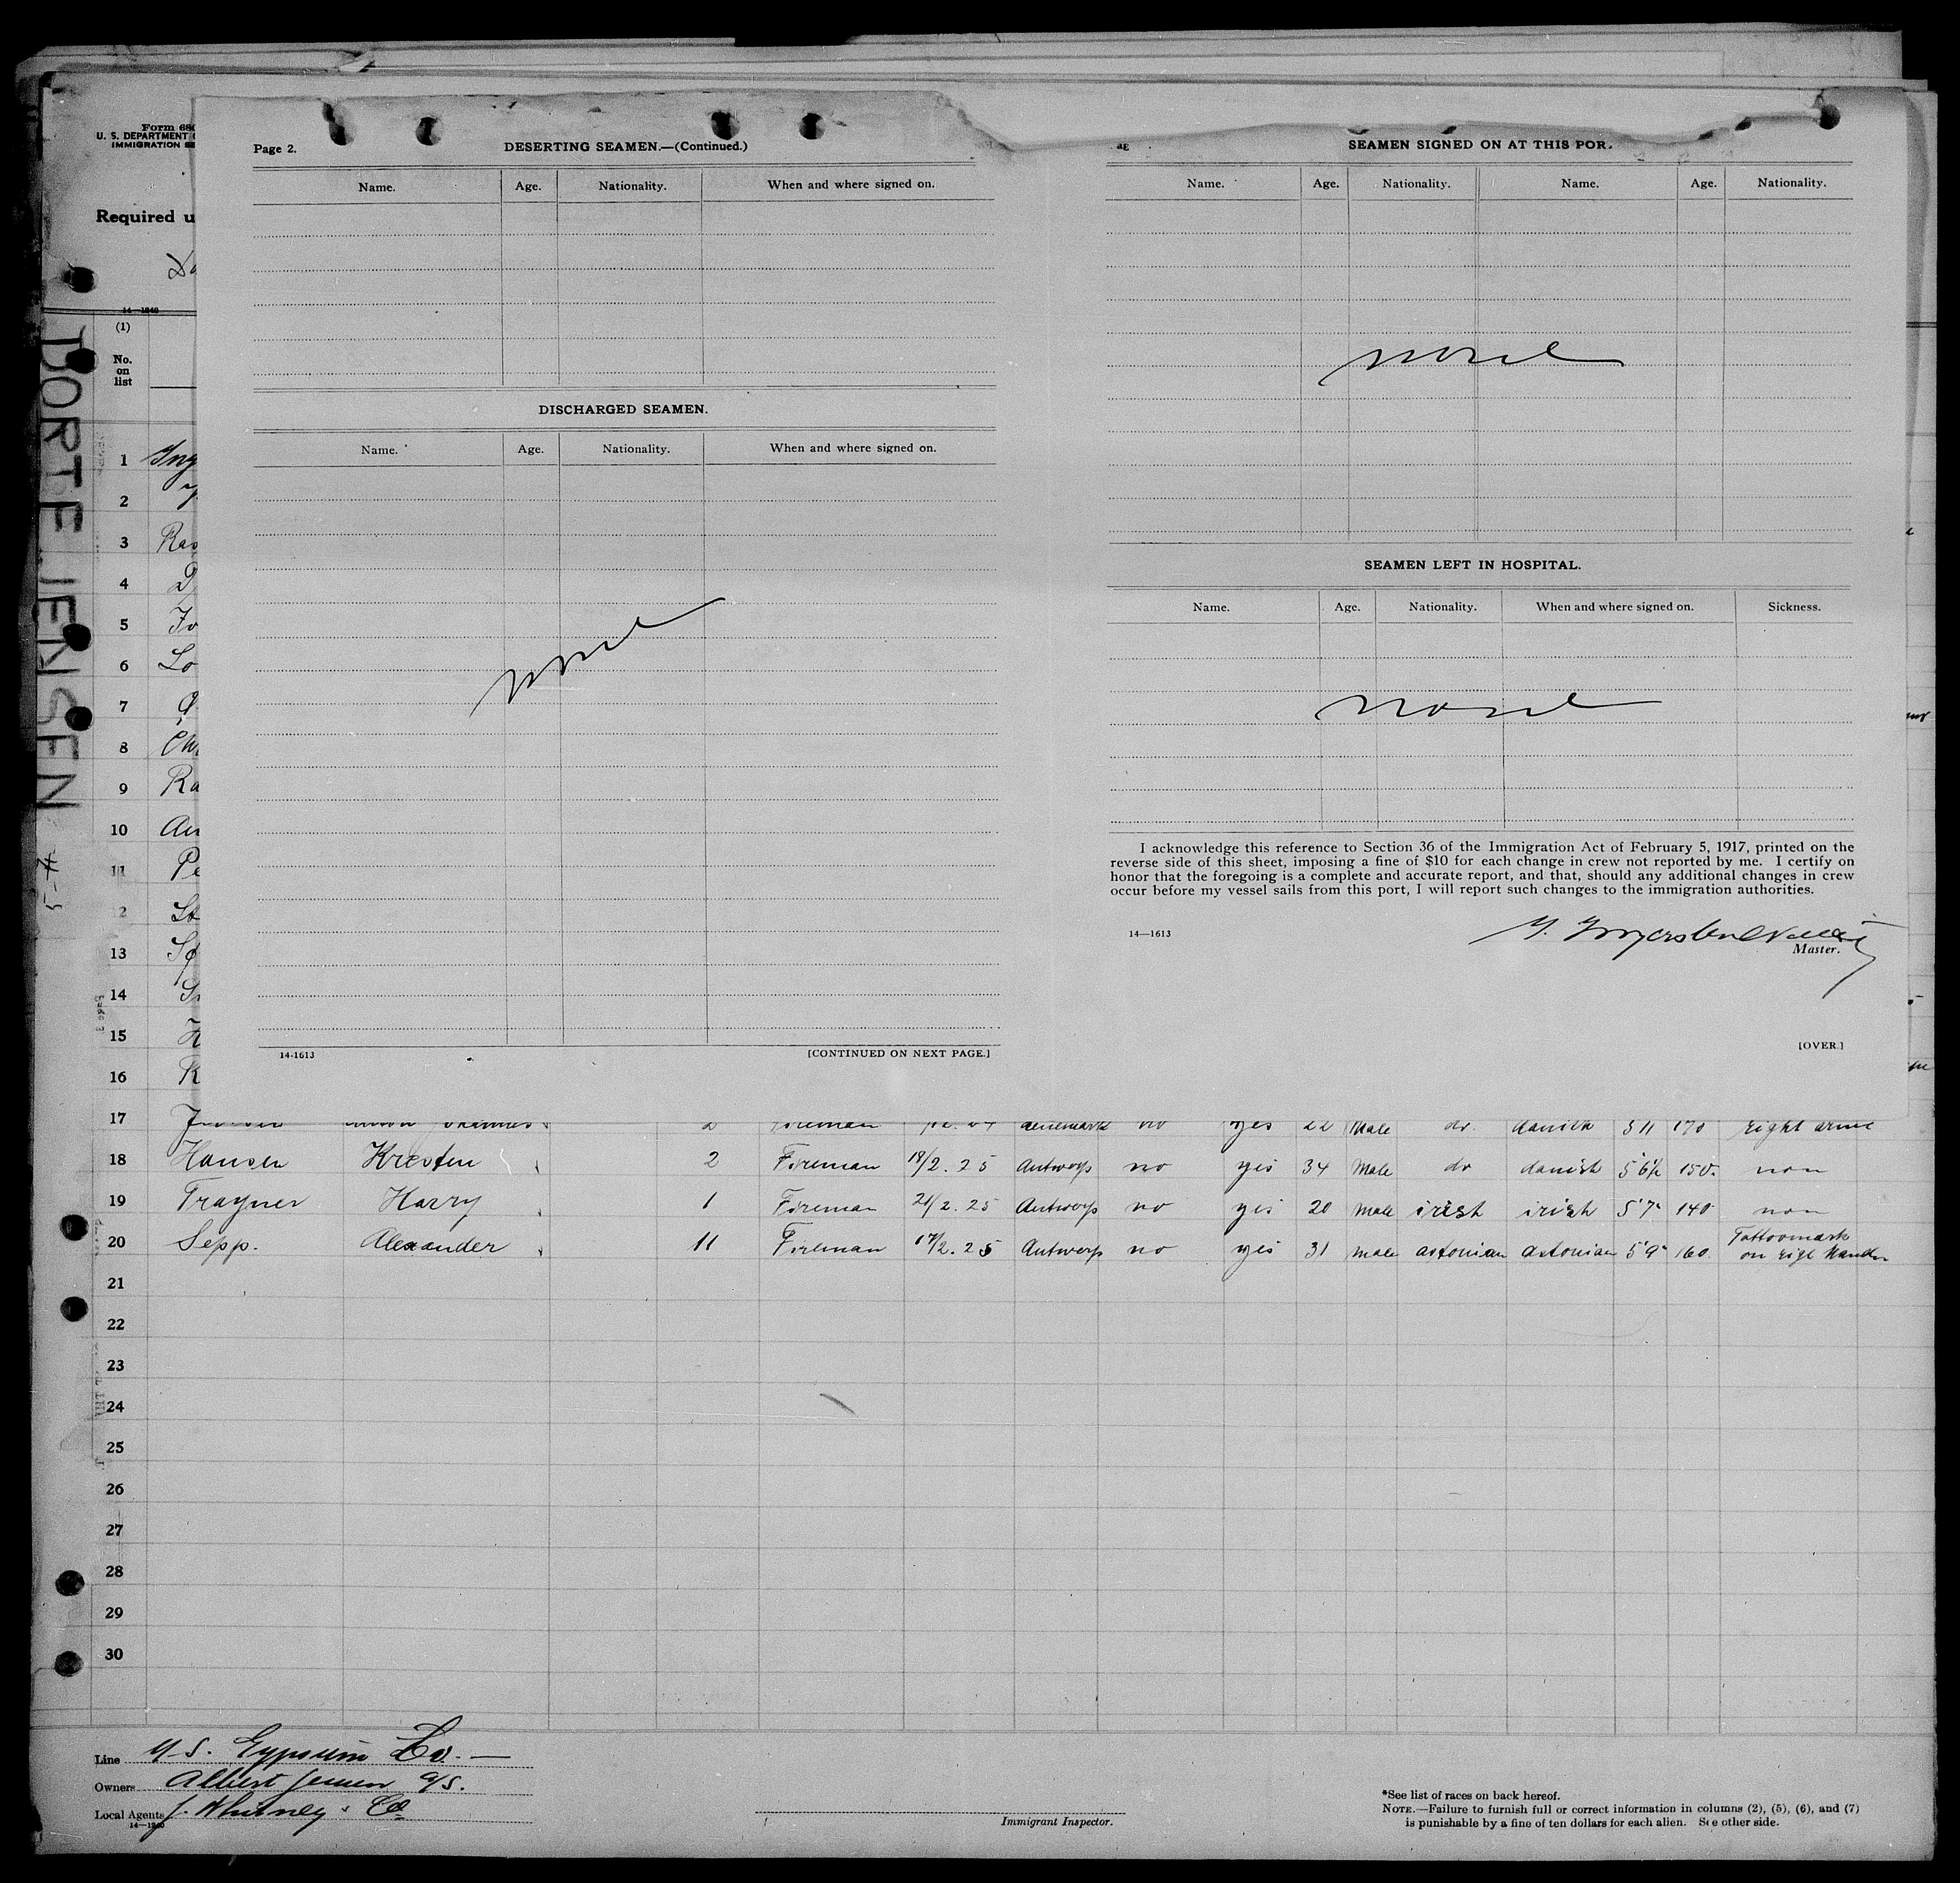 Form 680
U. S. DEPARTMENT
IMMIGRATION SE
Required u
14—1240
(1)
No.
on
list
DORTE JENSEN
Page 2.
DESERTING SEAMEN.—(Continued.)
Name. Age. Nationality. When and where signed on.
DISCHARGED SEAMEN.
Name. Age. Nationality. When and where signed on.
none
14-1613
[CONTINUED ON NEXT PAGE.]
SEAMEN SIGNED ON AT THIS POR
Name. Age. Nationality. Name. Age. Nationality.
none
SEAMEN LEFT IN HOSPITAL.
Name. Age. Nationality. When and where signed on. Sickness.
none
I acknowledge this reference to Section 36 of the Immigration Act of February 5, 1917, printed on the
reverse side of this sheet, imposing a fine of $10 for each change in crew not reported by me. I certify on
honor that the foregoing is a complete and accurate report, and that, should any additional changes in crew
occur before my vessel sails from this port, I will report such changes to the immigration authorities.
14—1613
Master.
[OVER.]
1 Ing
2
3 Ras
4
5
6 Lo
7
8 Chr
9 Ra
10 An
11 Pe
12 St
13
14
15
16 K
17 2 Fireman denemark no yes 22 Male do. danish 5 11 170 right arme
18 Hansen Kresten 2 Fireman 18/2. 25 Antwerp no yes 34 Male do danish 5'6½ 150. non
19 Trayner Harry 1 Fireman 21/2. 25 Antwerp no yes 20 Male irish irish 5'7" 140 non
20 Sepp. Alexander 11 Fireman 17/2. 25 Antwerp no yes 31 male astonian astonian 5'9" 160. Tattoomark
on rigt Handn
21
22
23
24
25
26
27
28
29
30
Line U.S. Gypsum Co. —
Owners Albert Jensen a/s.
Local Agents J. Whitney & Co
14—1240
Immigrant Inspector.
*See list of races on back hereof.
NOTE.—Failure to furnish full or correct information in columns (2), (5), (6), and (7)
is punishable by a fine of ten dollars for each alien. See other side.